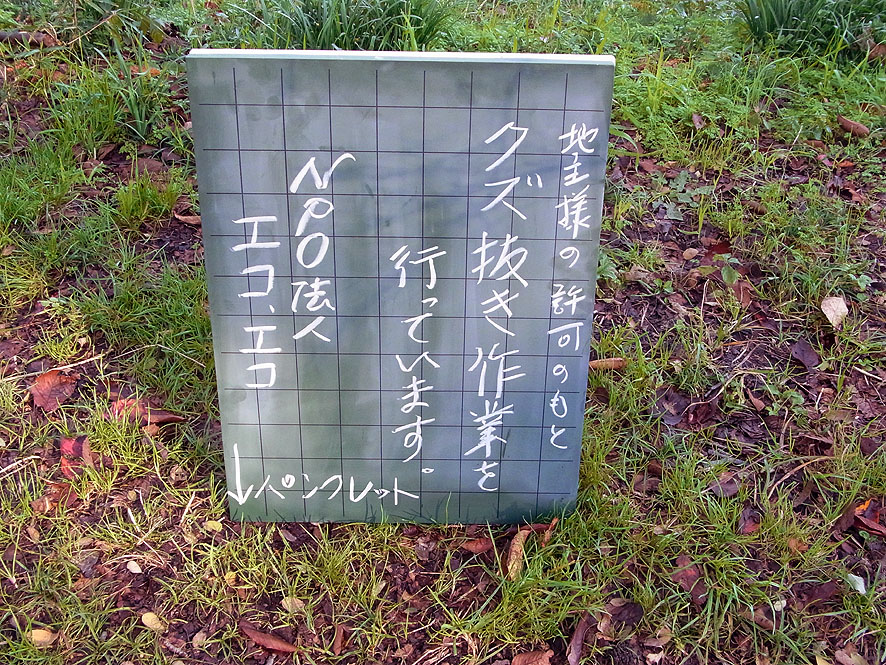 地主様の許可のもと
クズ抜き作業を
行っています。
NPO法人
エコ、エコ
↓パンフレット